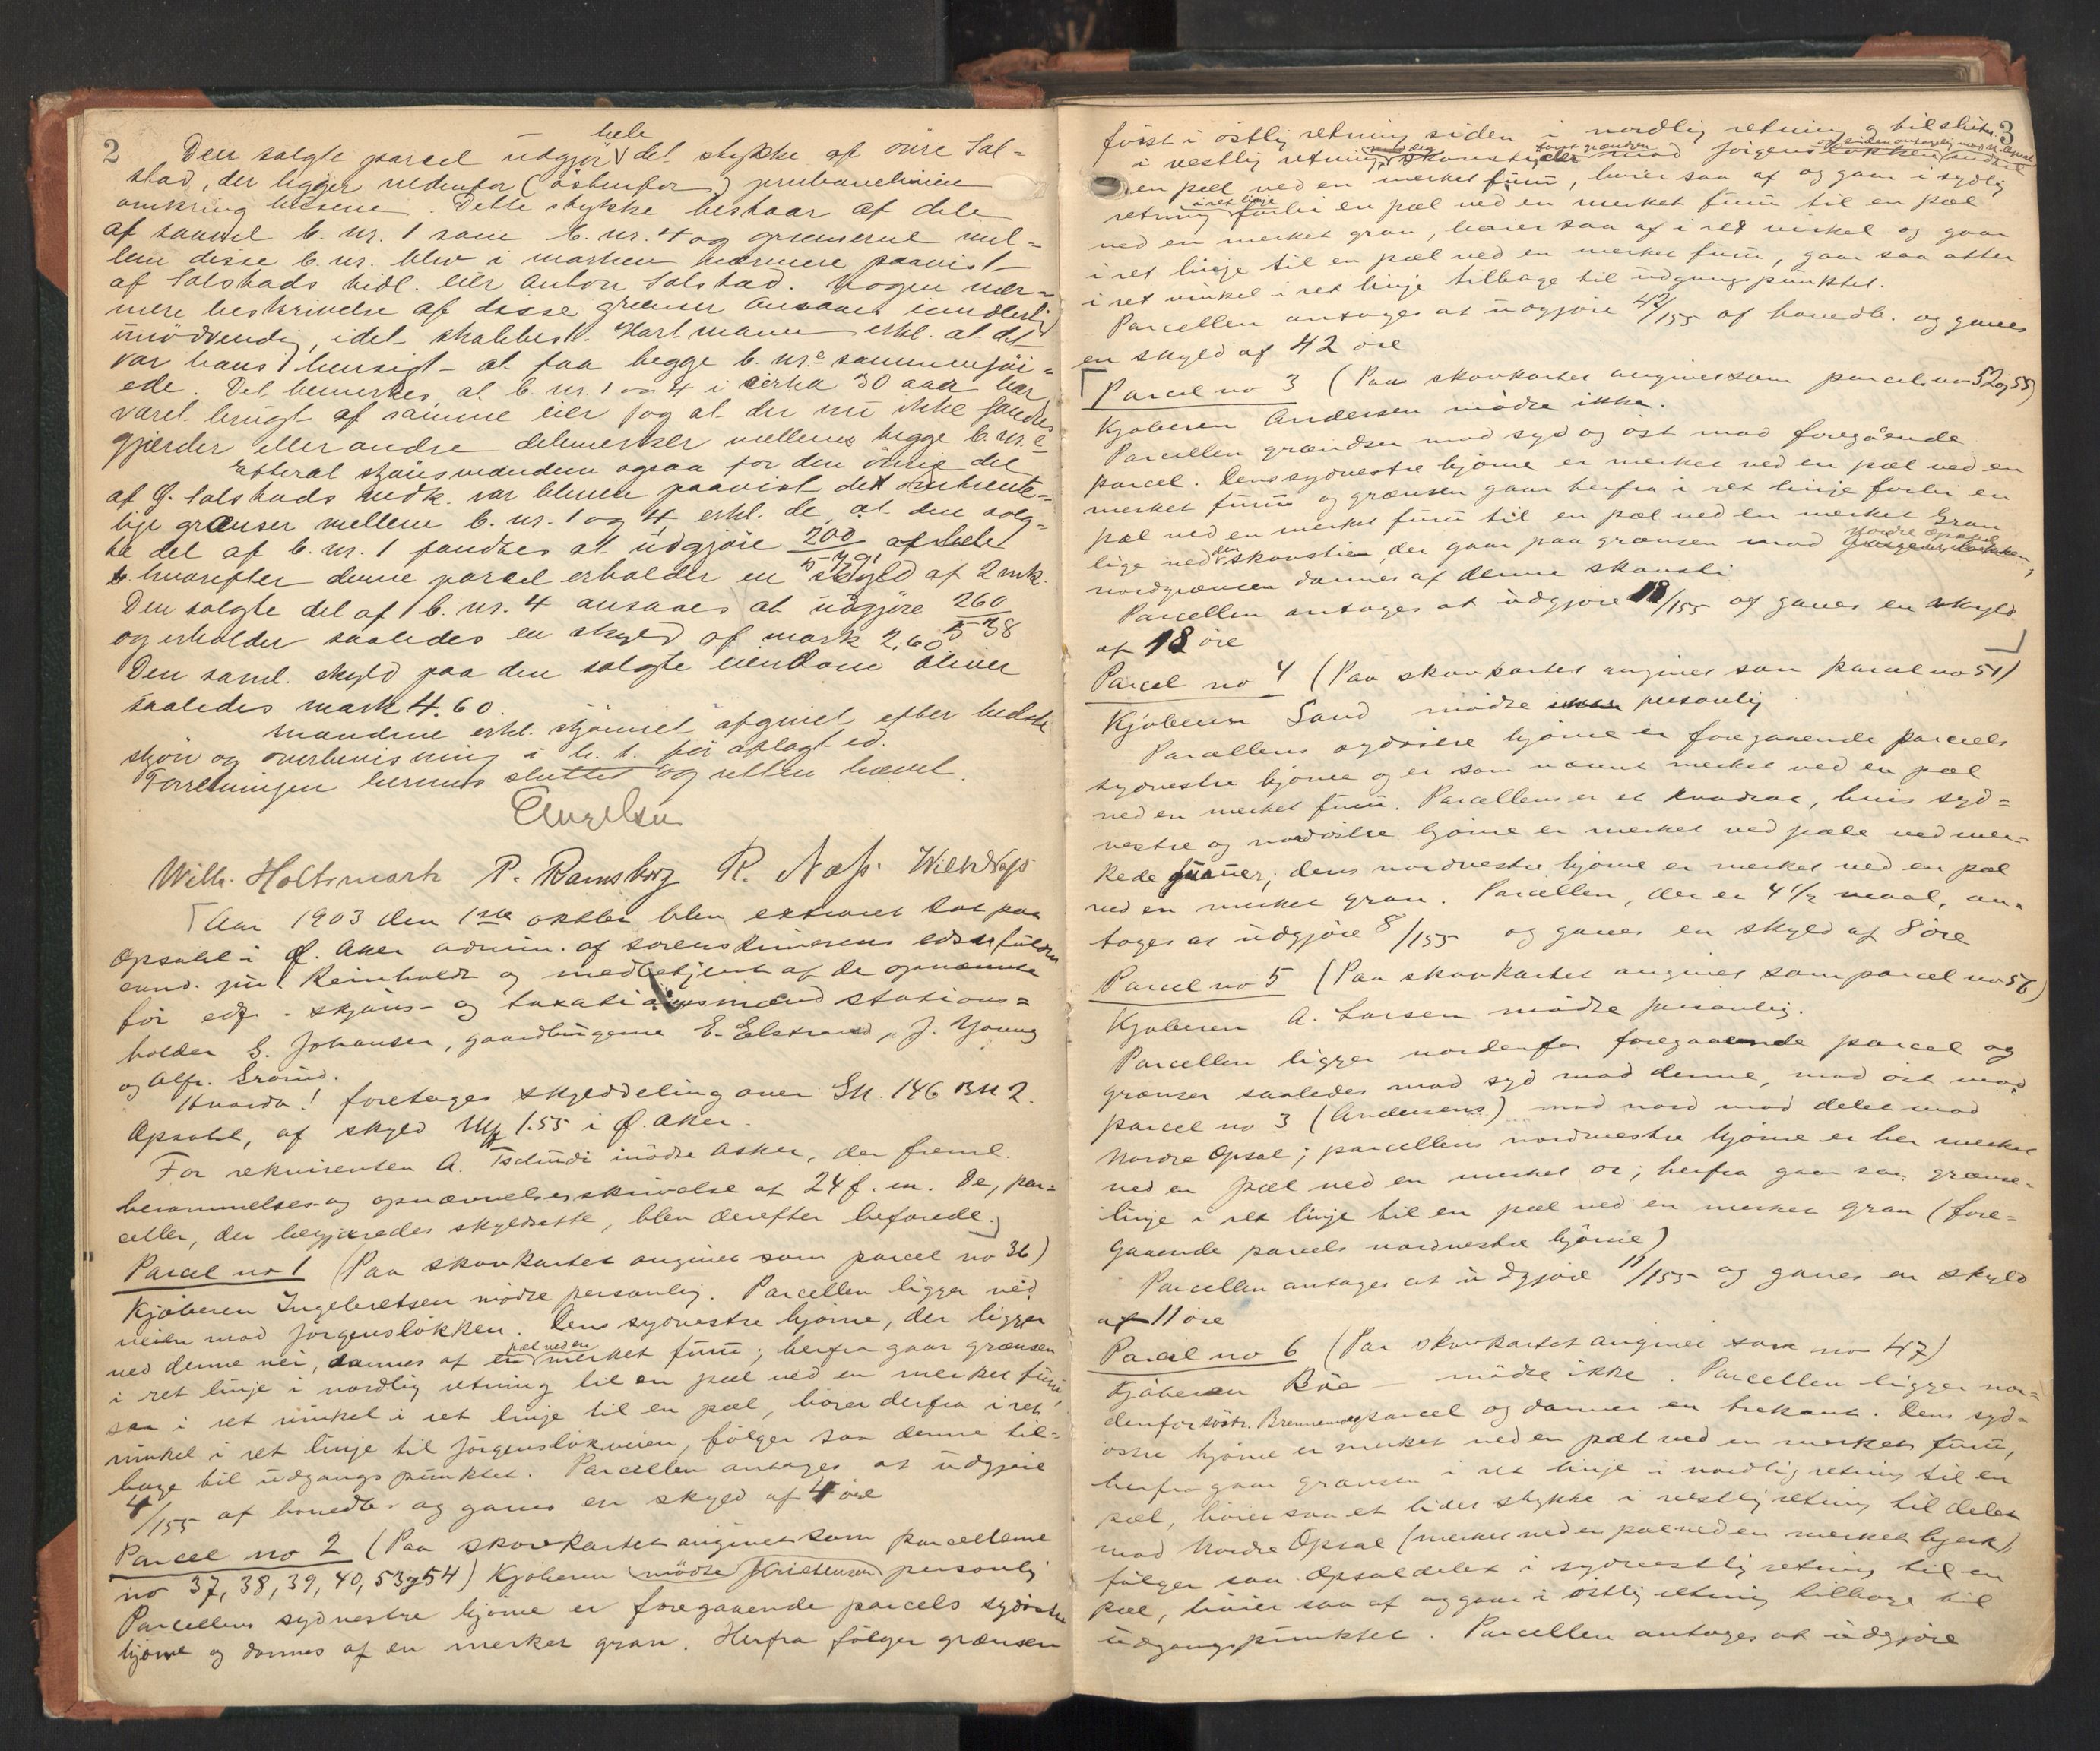 2
hele
Den solgte parcel udgjör det stykke af övre Sol-
stad, der ligger nedenfor (östenfor)
omkring husene. Dette stykke bestaar af dele
af saavel b. nr. 1 som b. nr. 4 og grænserne mel-
lem disse b. nr. blev i marken nærmere paavist
af Solstads tidl. eier Anton Solstad. Nogen nær-
mere beskrivelse af disse grænser ansaaes
unödvendig, idet skobbest. Hartmann erkl. at det
var hans hensigt at faa begge b. nr.e sammenföi-
ede. Det bemerkes at b. nr. 1 og 4 i cirka 30 aar har
været brugt af samme eier og at der nu ikke fandtes
gjerder eller andre delemerker mellem begge b. nr.e
Efterat skjönsmændene ogsaa for den övrige del
af Ö. Solstads vedk. var blevne paavist de omtrent-
lige grænser mellem b. nr. 1 og 4, erkl. de, at den solg-
te del af b. nr. 1 fandtes at udgjöre 200
hvorefter denne parcel erholder en skyld af 2 mk.
Den solgte del af b. nr. 4 ansaaes at udgjöre 260
og erholder saaledes en skyld af mark 2,60
Den saml. skyld paa den solgte eiendom bliver
saaledes mark 4.60.
Mændene erkl. skjönnet afgivet efter bedste
skjön og overbevisning i h. t. för aflagt ed.
Forretningen hermed sluttet og retten hævet.
Engelsen
Wilh. Holtsmark P. Ramsborg R. Næss.
Aar 1903 den 1ste oktbr blev extraret sat paa
Opsahl i Ö. Aker admin. af sorenskriverens edsv. fuldm.
cand. jur. Reinholdt og medbetjent af de opnævnte
för edf. skjöns- og taxationsmænd stations-
holder G. Johansen, gaardbrugerne E. Elstrand, J. Young
og Alfr. Grönd.
Hvorda! foretages skylddeling over Gn. 146 Bn 2.
Opsahl, af skyld Mk 1.55 i Ö. Aker.
For rekvirenten A. Tschudi mödte Asker, der freml.
berammelses og opnævnelsesskrivelse af 24 f. m. De, par-
celler, der begjæredes skyldsatte, blev derefter befarede.
Parcel no 1 (Paa skovkartet angivet som parcel no 36)
Kjöberen Ingebretsen mödte personlig. Parcellen ligger ved
veien mod Jörgenslökken. Dens sydvestre hjörne, der ligger
pæl ved en
ved denne vei, dannes af en merket furu; herfra gaar grænsen
i ret linje i nordlig retning til en pæl ved en merket furu,
saa i ret vinkel i ret linje til en pæl, böier derfra i ret
vinkel i ret linje til Jörgenslökveien, fölger saa denne til-
bage til udgangspunktet. Parcellen antages at udgjöre
4/155 af hovedb. og gaves en skyld af 4 öre
Parcel no 2 (Paa skovkartet angivet som parcellerne
no 37, 38, 39, 40, 53 og 54) Kjöberen mödte Kristensen personlig
Parcellens sydvestre hjörne er foregaaende parcels sydöstre
hjörne og dannes af en merket gran. Herfra fölger grænsen
3
först i östlig retning siden i nordlig retning og tilslut
i vestlig retning skovstien mod Jörgenslökken
en pæl ved en merket furu, böier saa af og gaar i sydlig
i ret linje
retning forbi en pæl ved en merket furu til en pæl
ved en merket gran, böier saa af i ret vinkel og gaar
i ret linje til en pæl ved en merket furu, gaar saa atter
i ret vinkel i ret linje tilbage til udgangspunktet.
Parcellen antages at udgjöre 42/155 af hovedb. og gaves
en skyld af 42 öre
Parcel no 3 (Paa skovkartet angivet som parcel no 52 og 55)
Kjöberen Andersen mödte ikke.
Parcellen grændser mod syd og öst mod foregående
parcel. Dens sydvestre hjörne er merket ved en pæl ved en
merket furu og grænsen gaar herfra i ret linje forbi en
pæl ved en merket furu til en pæl ved en merket gran
Nordre Opsal
lige ved den skovsti, der gaar paa grænsen mod Jörgenslökken,
nordgrænsen dannes af denne skovsti
Parcellen antages at udgjöre 18/155 og gaves en skyld
af 18 öre
Parcel no 4 (Paa skovkartet angivet som parcel no 51)
Kjöberen Sand mödte personlig
Parcellens sydöstre hjörne er foregaaende parcels
sydvestre hjörne og er som nævnt merket ved en pæl
ved en merket furu. Parcellen er et kvadrat, hvis syd-
vestre og nordöstre hjörne er merket ved pæle ved mer-
kede furuer; dens nordvestre hjörne er merket ved en pæl
ved en merket gran. Parcellen, der er 4 1/2 maal, an-
tages at udgjöre 8/155 og gaves en skyld af 8 öre
Parcel no 5 (Paa skovkartet angivet som parcel no 56)
Kjöberen A. Larsen mödte personlig.
Parcellen ligger nordenfor foregaaende parcel og
grænser saaledes mod syd mod denne, mod öst mod
parcel no 3 (Andersens) mod nord mod delet mod
Nordre Opsal; parcellens nordvestre hjörne er her merket
ved en pæl ved en merket or; herfra gaar saa grænse-
linje i ret linje til en pæl ved en merket gran (fore-
gaaende parcels nordvestre hjörne)
Parcellen antages at udgjöre 11/155 og gaves en skyld
af 11 öre
Parcel no 6 (Paa skovkartet angivet som no 47)
Kjöberen Böe mödte ikke. Parcellen ligger nor-
denfor söstr. Brennemoes parcel og danner en trekant. Dens syd-
östre hjörne er merket ved en pæl ved en merket furu,
herfra gaar grænsen i ret linje i nordlig retning til en
pæl, böier saa et lidet stykke i vestlig retning til delet
mod Nordre Opsal (merket ved en pæl ved en merket bjerk),
fölger saa Opsaldelet i sydvestlig retning til en
pæl, böier saa af og gaar i östlig retning tilbage til
udgangspunktet. Parcellen antages at udgjöre